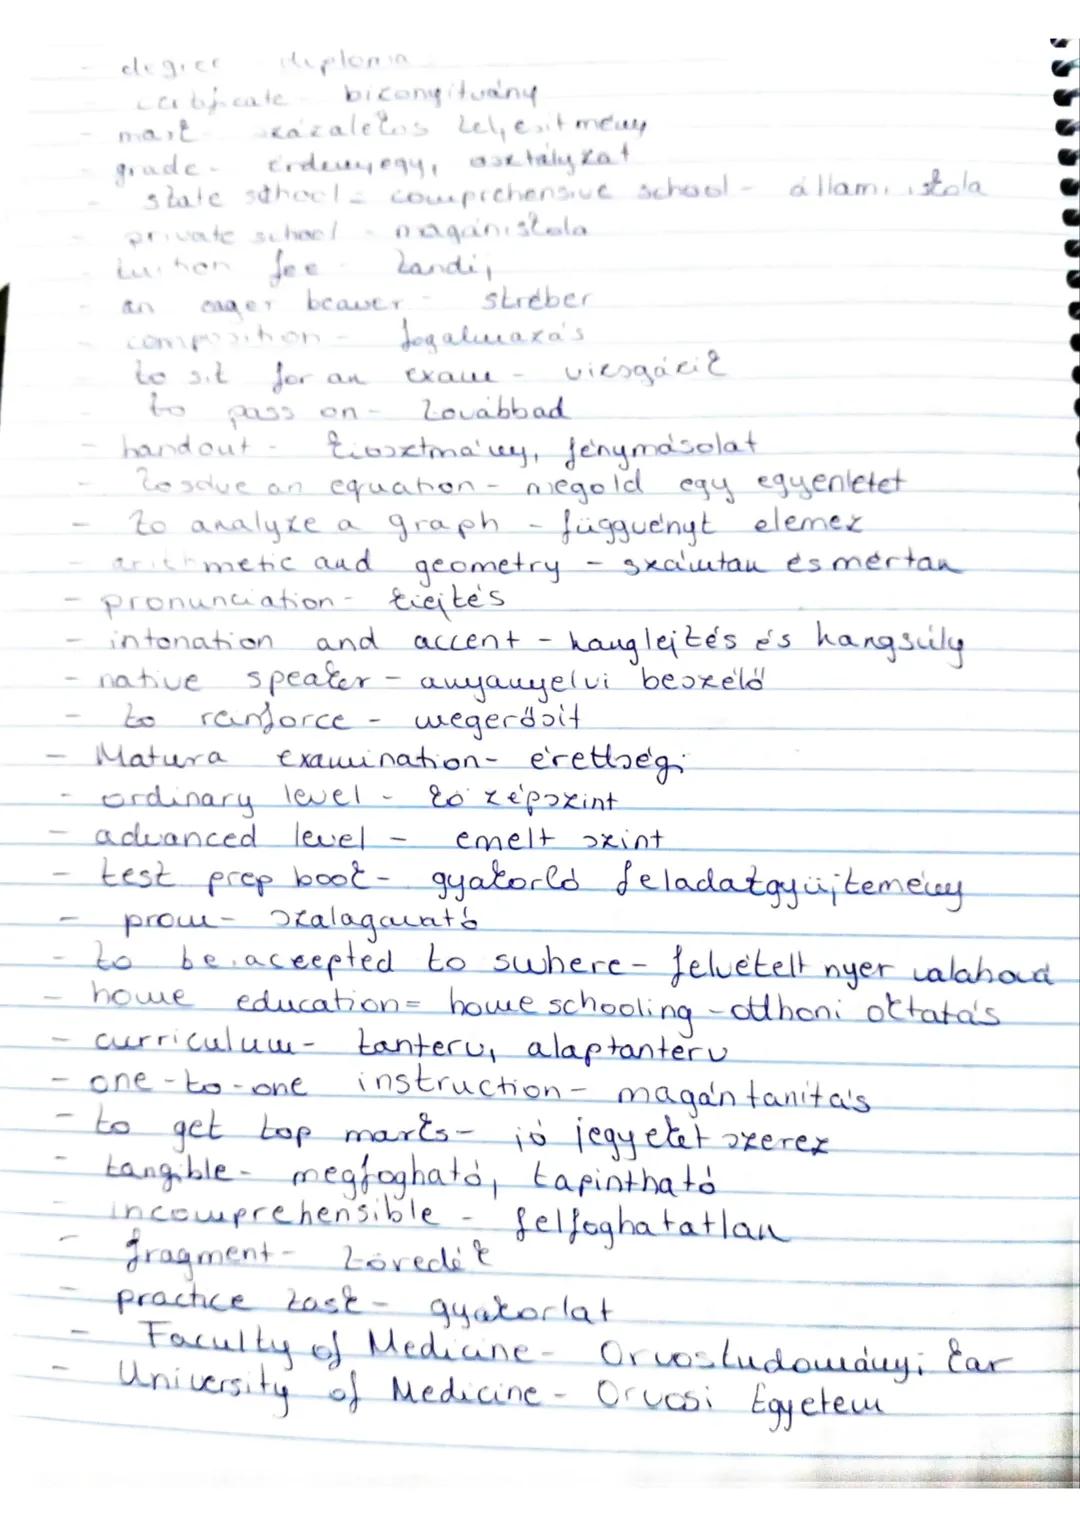 - degree diploma
- certificate - bizonyítvány
- mark - százalékos teljesítmény
- grade - érdemjegy, osztályzat
- state school = comprehensive school - állami iskola
- private school - magániskola
- tuition fee - tandíj
- an eager beaver - stréber
- composition - fogalmazás
- to sit for an exam - vizsgázik
- to pass on - továbbad
- handout - kiosztmány, fénymásolat
- to solve an equation - megold egy egyenletet
- to analyze a graph - függvényt elemez
- arithmetic and geometry - számtan és mértan
- pronunciation - kiejtés
- intonation and accent - hanglejtés és hangsúly
- native speaker - anyanyelvi beszélő
- to reinforce - megerősít
- Matura examination - érettségi
- ordinary level - középszint
- advanced level - emelt szint
- test prep book - gyakorló feladatgyűjtemény
- prom - szalagavató
- to be accepted to swhere - felvételt nyer valahova
- home education = home schooling - otthoni oktatás
- curriculum - tanterv, alaptanterv
- one-to-one instruction - magántanítás
- to get top marks - jó jegyeket szerez
- tangible - megfogható, tapintható
- incomprehensible - felfoghatatlan
- fragment - töredék
- practice task - gyakorlat
- Faculty of Medicine - Orvostudományi kar
- University of Medicine - Orvosi Egyetem